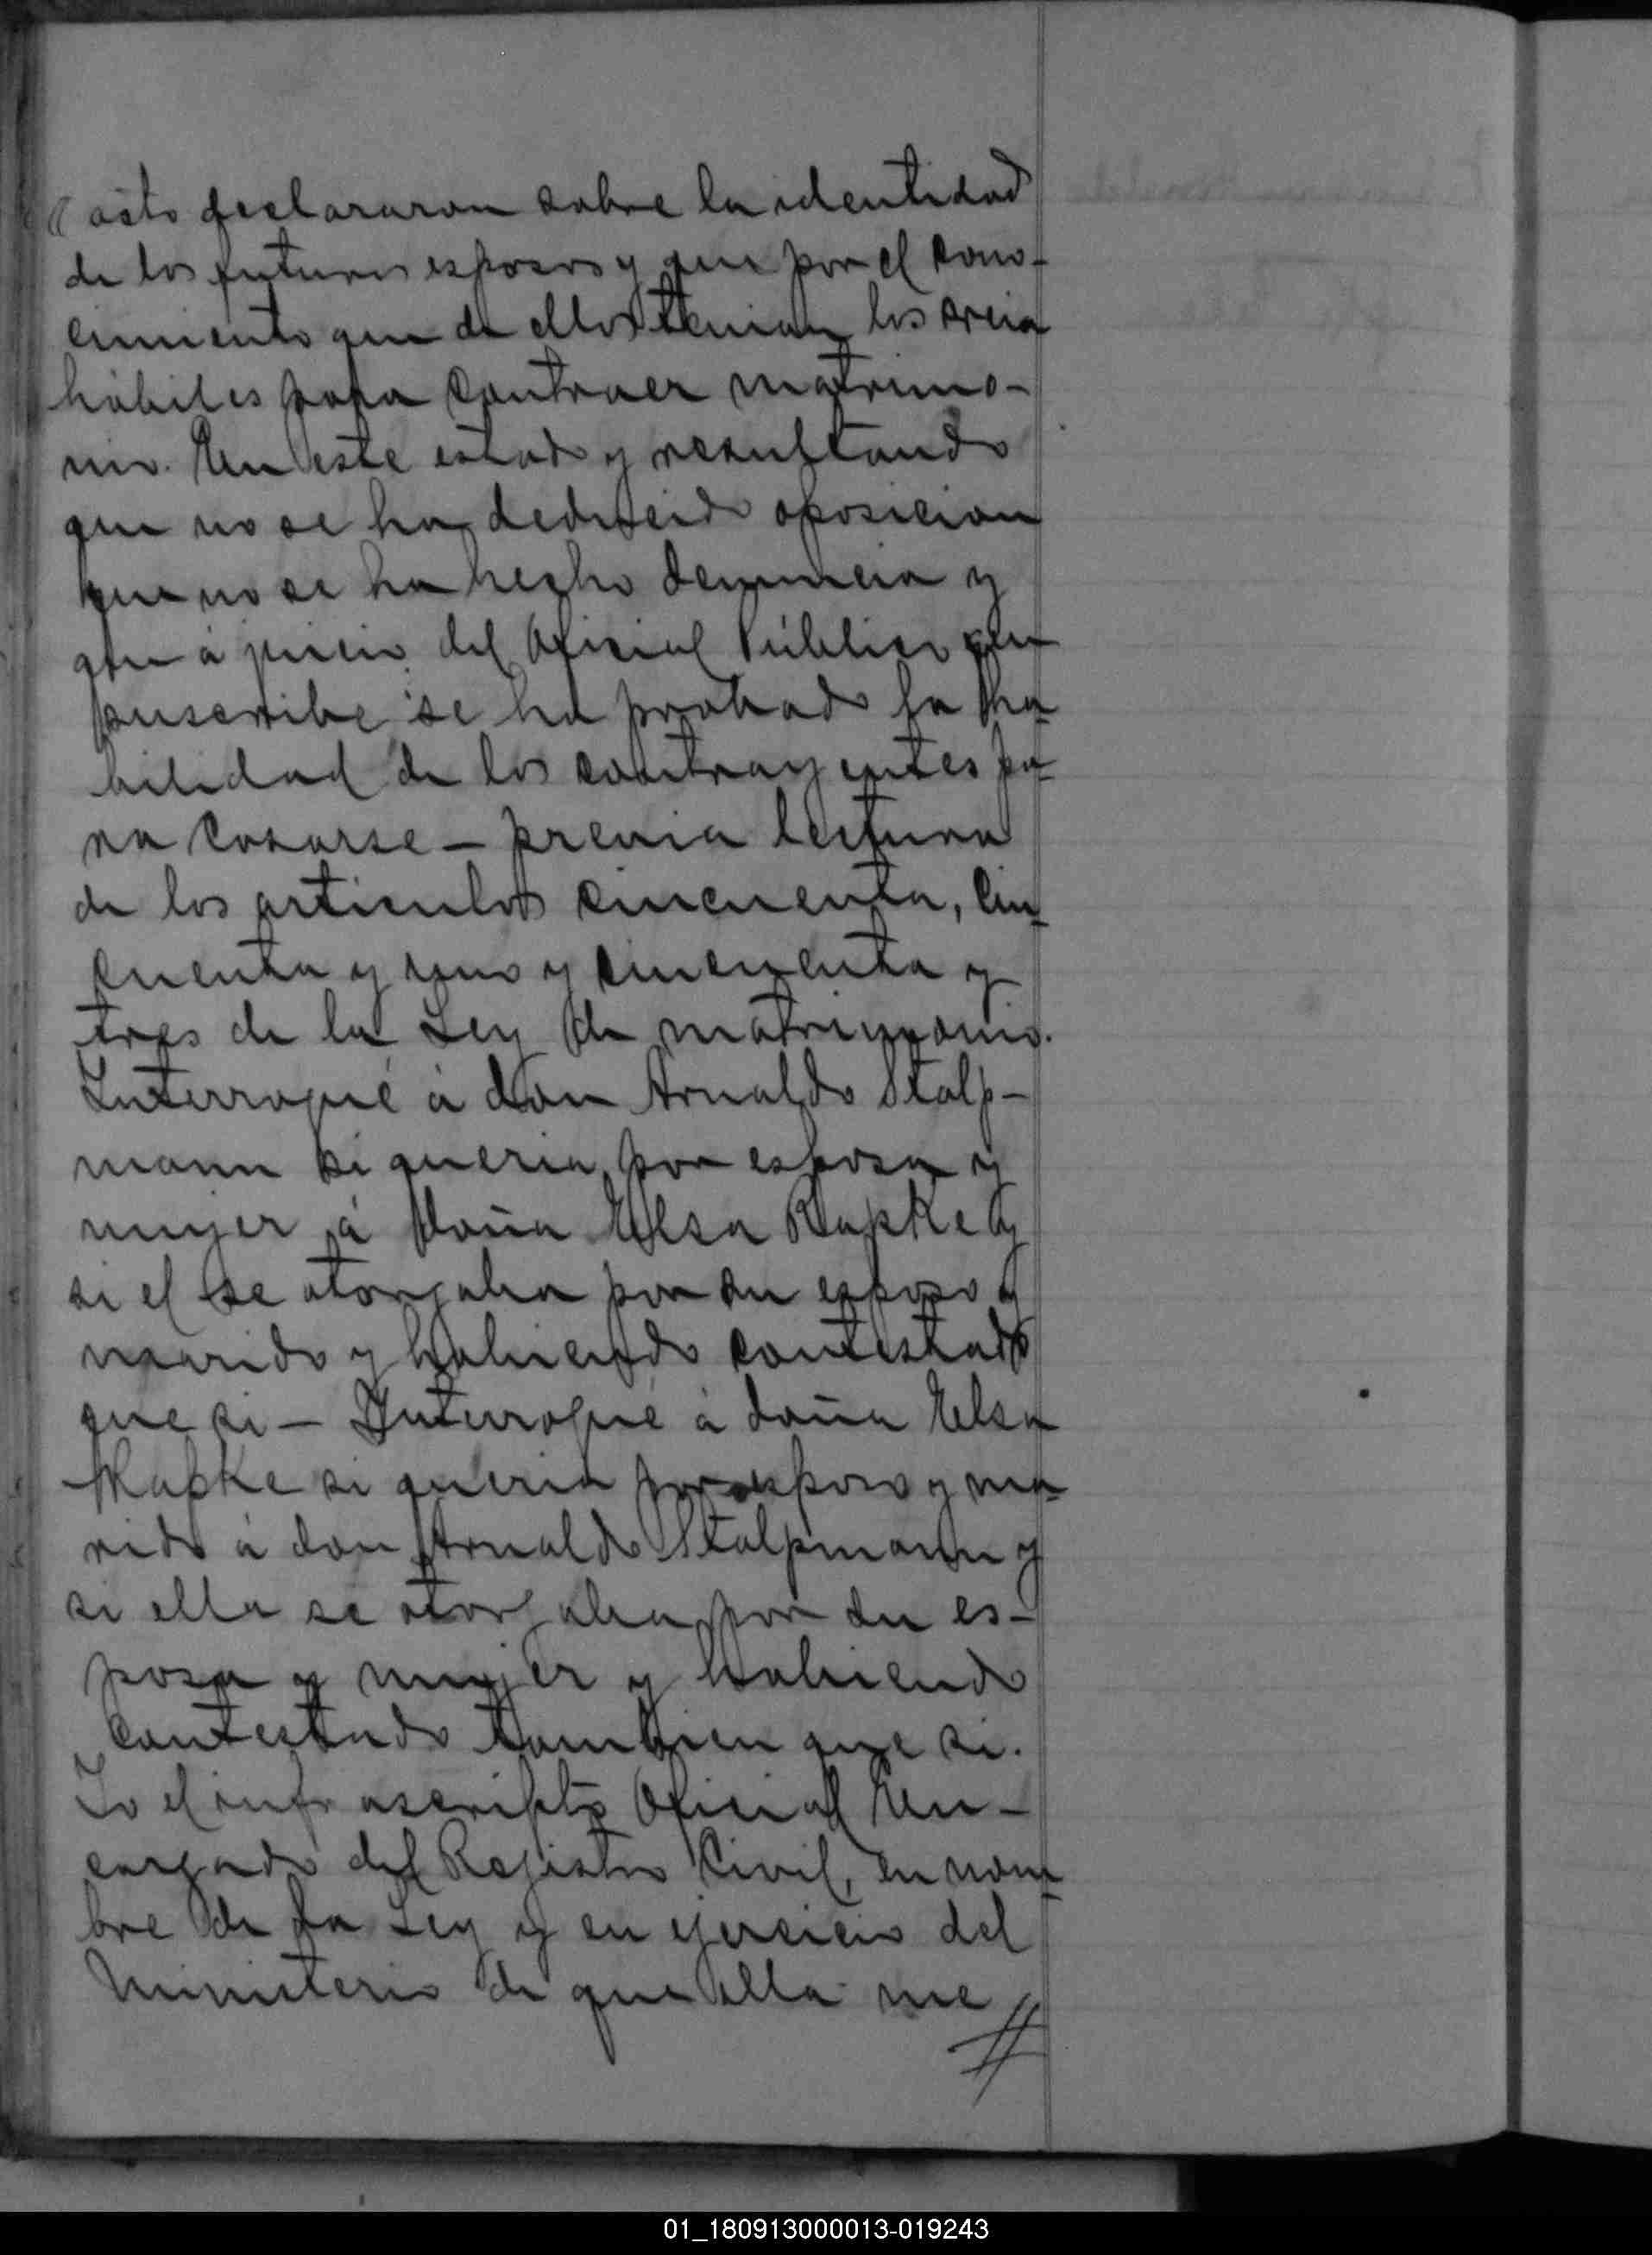 acto declararon sobre la identidad
de los futuros esposos y que por el cono-
cimiento que de ellos tenian los creia
hábiles para contraer matrimo-
nio. En este estado y resultando
que no se ha deducido oposicion
que no se ha hecho denuncia y
que á juicio del Oficial Público que
suscribe se ha probado la ha-
bilidad de los contrayentes pa-
ra casarse — previa lectura
de los articulos cincuenta, cin-
cuenta y uno y cincuenta y
tres de la Ley de matrimonio.
Interrogué á don Arnaldo Stalp-
mann si queria por esposa y
mujer á doña Elsa Rapke y
si el se otorgaba por su esposo y
marido y habiendo contestado
que si — Interrogué á doña Elsa
Rapke si queria por esposo y ma-
rido á don Arnaldo Stalpmann y
si ella se otorgaba por su es-
posa y mujer y habiendo
contestado tambien que si.
Yo el infrascripto Oficial En-
cargado del Registro Civil, en nom-
bre de la Ley y en ejercicio del
Ministerio de que ella me
01_180913000013-019243